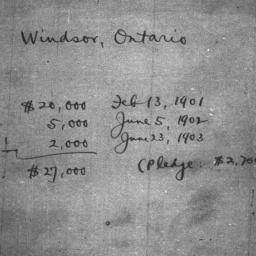 Windsor, Ontario
$20,000 Feb 13, 1901
5,000 June 5, 1902
2,000 June 23, 1903
$27,000 (Pledge: $2,70